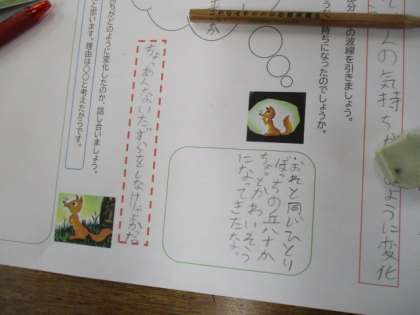 人の気持ちが
ように変化
の波線を引きましょう。
持ちになったのでしょうか。
・おれと同じひとり
ぼっちの兵十か
ちょっとかわいそう
になってきたな。
ちょ、あんないたずらをしなけりゃよかった
どのように変化したのか、話し合いましょう。
と思います。理由は○○と考えたからです。